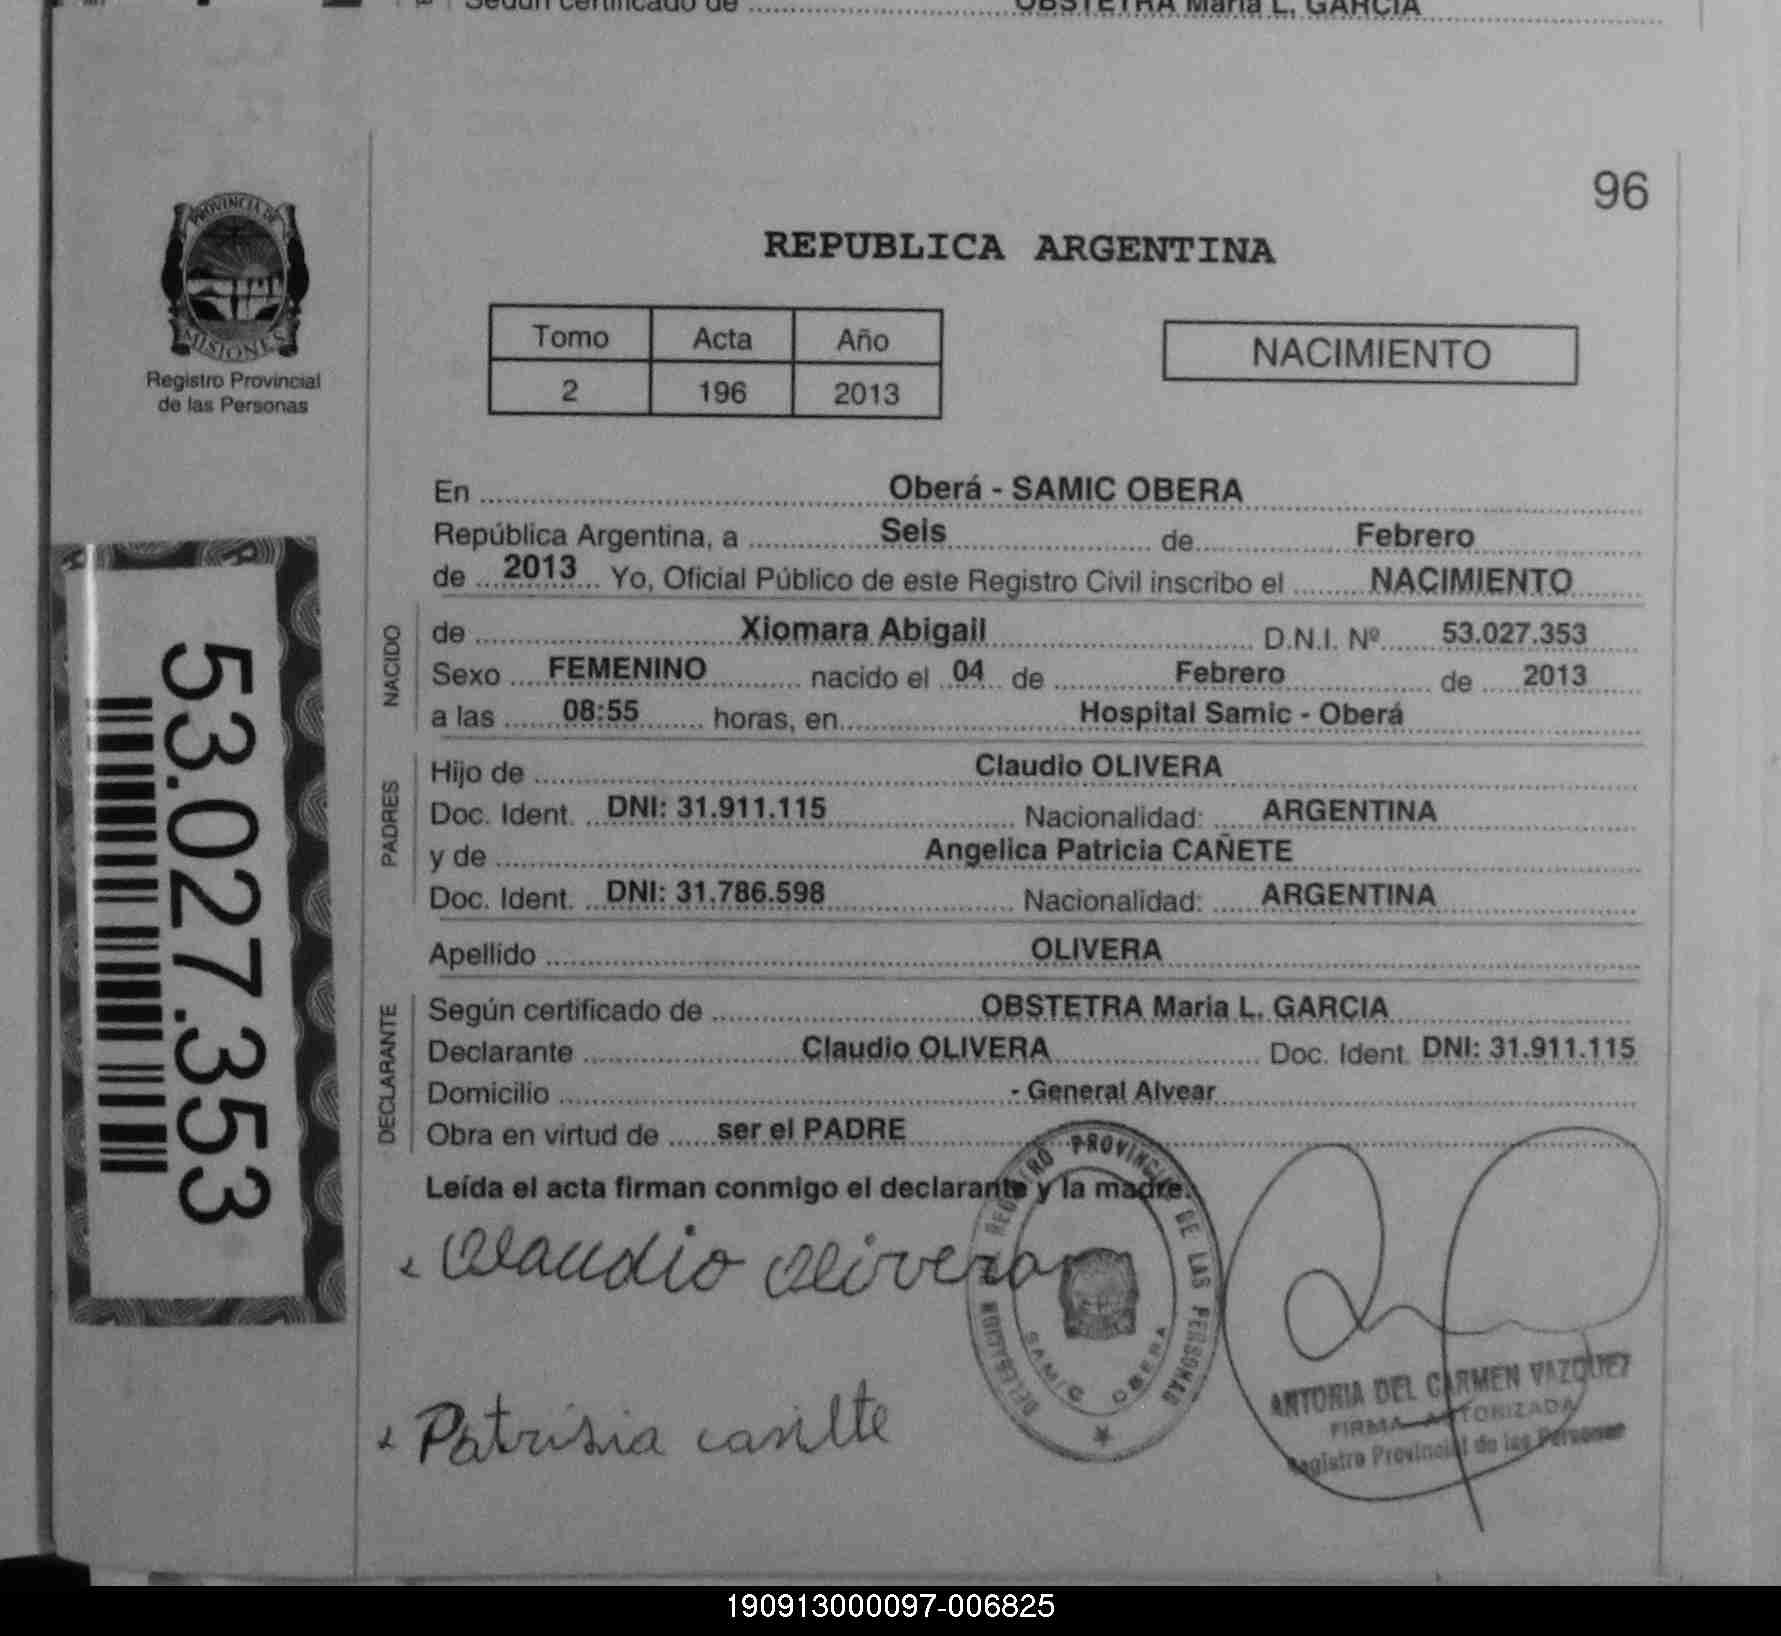 Según certificado de OBSTETRA Maria L. GARCIA
96
PROVINCIA DE
MISIONES
Registro Provincial
de las Personas
REPUBLICA ARGENTINA
Tomo Acta Año
2 196 2013
NACIMIENTO
En Oberá - SAMIC OBERA
República Argentina, a Seis de Febrero
de 2013 Yo, Oficial Público de este Registro Civil inscribo el NACIMIENTO
NACIDO
de Xiomara Abigail D.N.I. Nº 53.027.353
Sexo FEMENINO nacido el 04 de Febrero de 2013
a las 08:55 horas, en Hospital Samic - Oberá
PADRES
Hijo de Claudio OLIVERA
Doc. Ident. DNI: 31.911.115 Nacionalidad: ARGENTINA
y de Angelica Patricia CAÑETE
Doc. Ident. DNI: 31.786.598 Nacionalidad: ARGENTINA
Apellido OLIVERA
DECLARANTE
Según certificado de OBSTETRA Maria L. GARCIA
Declarante Claudio OLIVERA Doc. Ident. DNI: 31.911.115
Domicilio - General Alvear
Obra en virtud de ser el PADRE
Leída el acta firman conmigo el declarante y la madre.
53.027.353
Claudio Olivera
Patrisia
REGISTRO PROVINCIAL DE LAS PERSONAS
DELEGACION
SAMIC OBERA
ANTONIA DEL CARMEN VAZQUEZ
FIRMA AUTORIZADA
Registro Provincial de las Personas
190913000097-006825